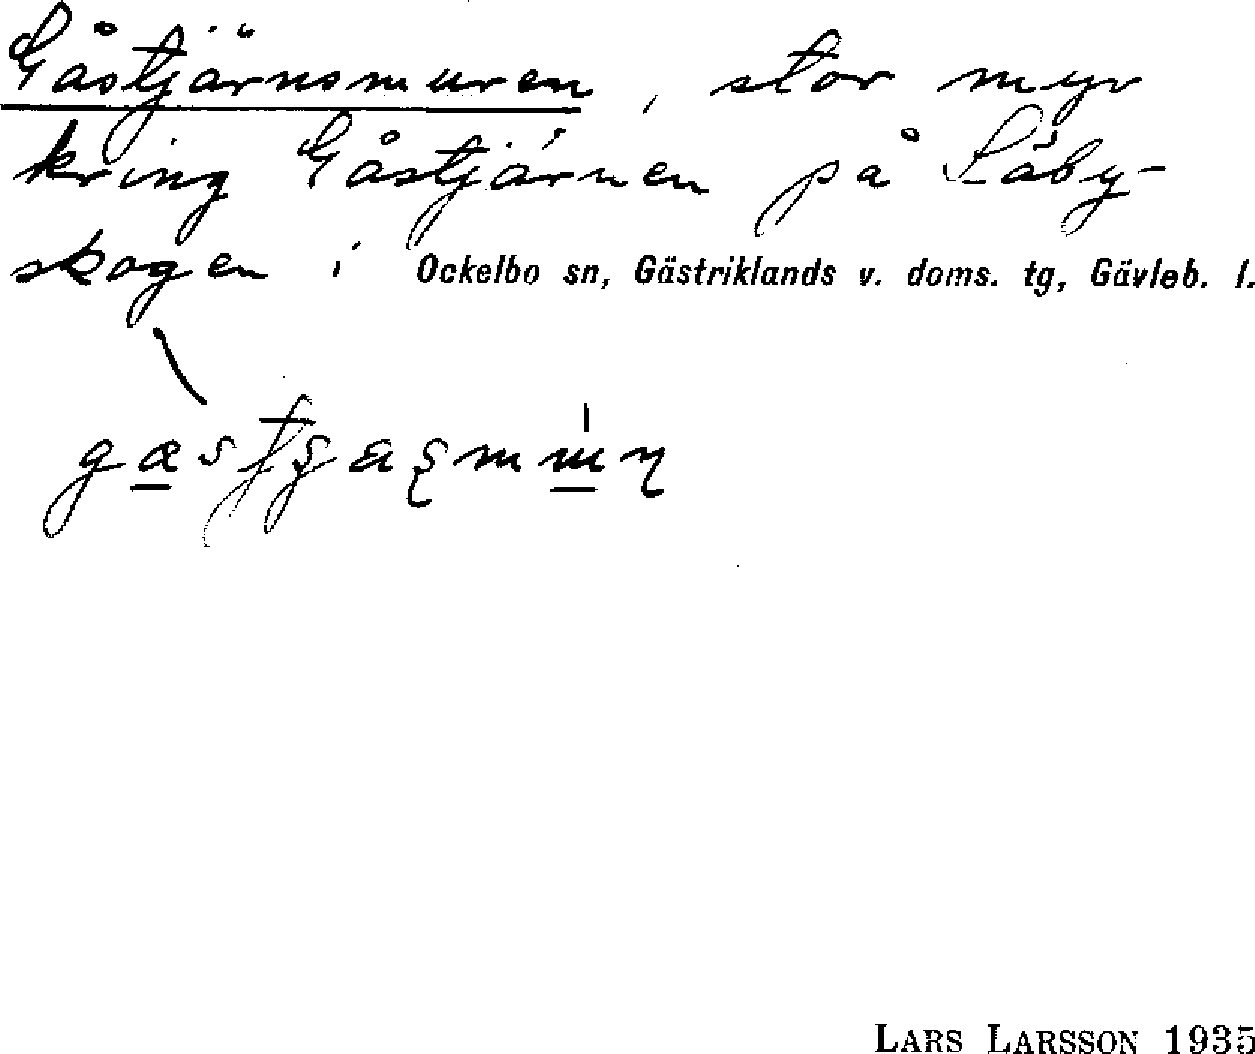 Gåstjärnsmuren, stor myr
kring Gåstjärnen på Säby-
skogen i Ockelbo sn, Gästriklands v. doms. tg, Gävleb. l.
LARS LARSSON 1935